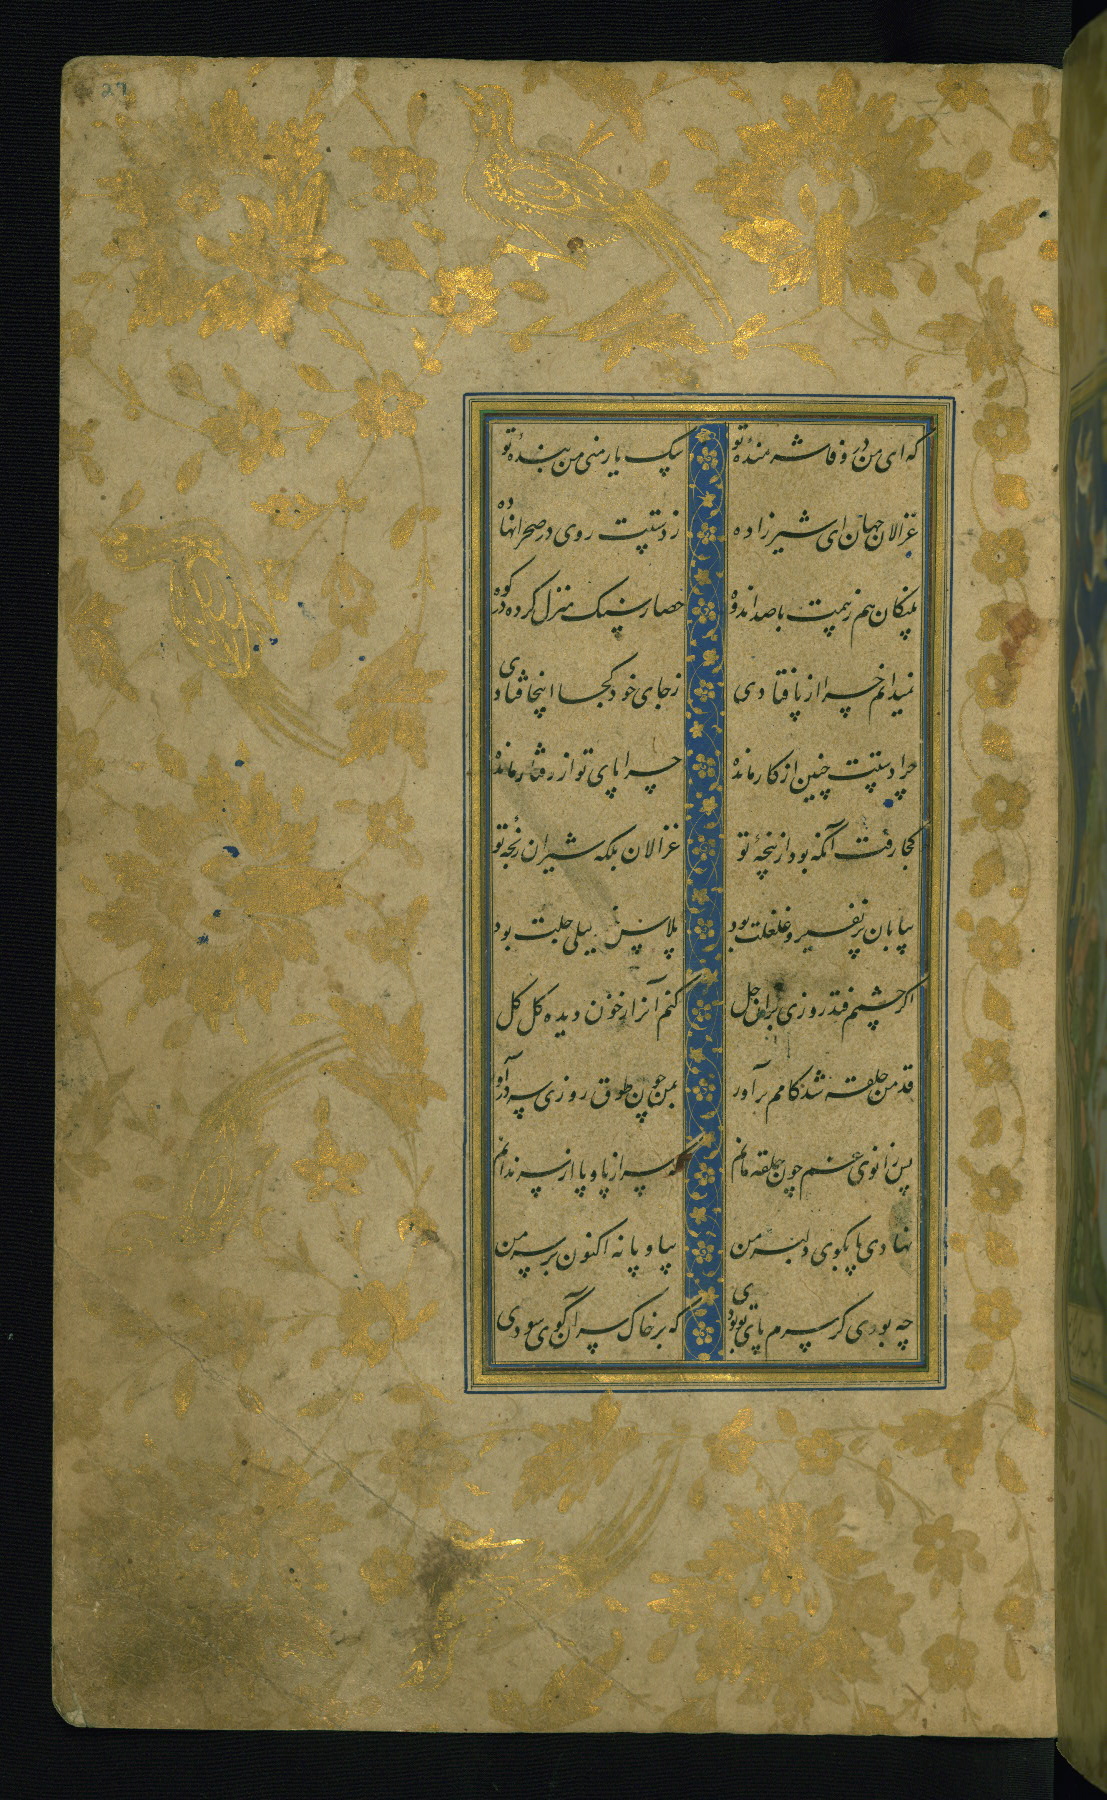 27
که ای من در وفا شرمندهٔ تو سگ یار منی من بندهٔ تو
غزالان جهان ای شیرزاده ز دستت روی در صحرا نهاده
پلنگان هم ز بیمت با صد اندوه حصار سنگ منزل کرده در کوه
نمیدانم چرا از پا فتادی ز جای خود کجا اینجا فتادی
چرا دستت چنین از کار مانده چرا پای تو از رفتار مانده
کجا رفت آنکه بود از پنجهٔ تو غزالان بلکه شیران رنجهٔ تو
بیابان پر نفیر و غلغلت بود پلاس لیلی جلت بود
اگر چشمم فتد روزی بر آن جل کنم آنرا ز خون دیده گل گل
قد من حلقه شد کامم برآور بمن چون طوق روزی سر درآور
پس زانوی غم چون حلقه مانم که سر از پا و پا از سر ندانم
نهادی پا بکوی دلبر من بیا و پا نه اکنون بر سر من
چه بودی گر سرم پای تو بودی که بر خاک سر آن کوی سودی